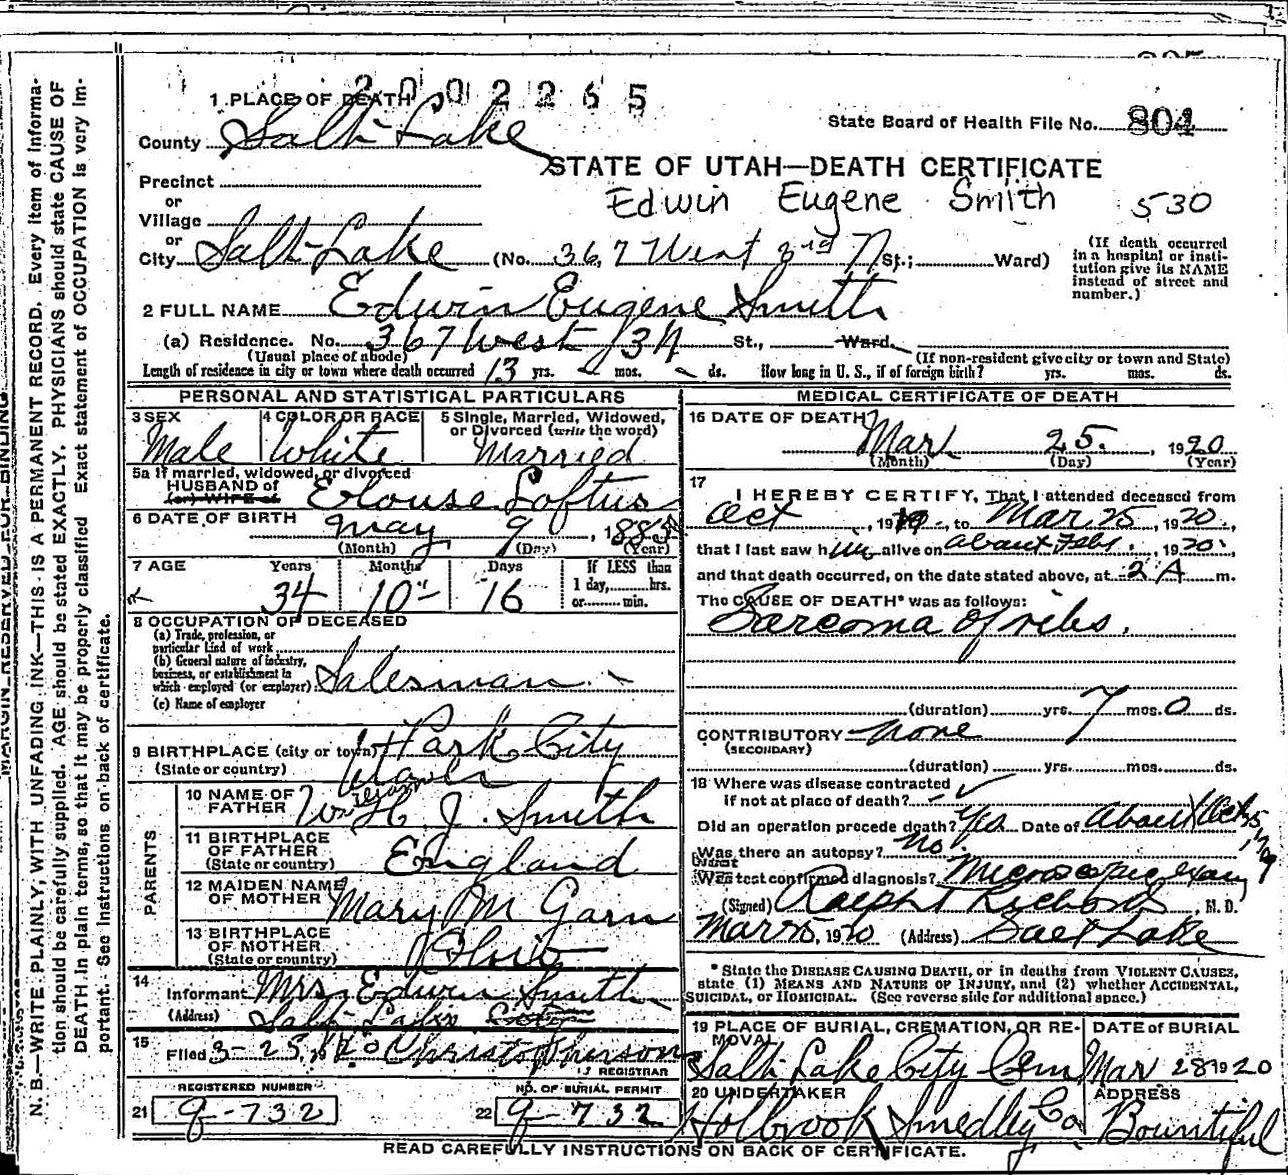 2 0 0 2 2 6 5
1 PLACE OF DEATH
County Salt Lake
State Board of Health File No. 804
STATE OF UTAH—DEATH CERTIFICATE
Precinct
or
Village
Edwin Eugene Smith 530
or
City Salt Lake (No. 367 West 3rd N St.; Ward)
(If death occurred in a hospital or institution give its NAME instead of street and number.)
2 FULL NAME Edwin Eugene Smith
(a) Residence. No. 367 West 3 N St., Ward.
(Usual place of abode) (If non-resident give city or town and State)
Length of residence in city or town where death occurred 13 yrs. mos. ds. How long in U. S., if of foreign birth? yrs. mos. ds.
PERSONAL AND STATISTICAL PARTICULARS
3 SEX Male
4 COLOR OR RACE White
5 Single, Married, Widowed, or Divorced (write the word) Married
5a If married, widowed, or divorced
HUSBAND of
(or) WIFE of
Elouse Loftus
6 DATE OF BIRTH May 9, 1885
(Month) (Day) (Year)
7 AGE Years Months Days If LESS than
34 10 16 1 day, hrs.
or min.
8 OCCUPATION OF DECEASED
(a) Trade, profession, or
particular kind of work
(b) General nature of industry,
business, or establishment in
which employed (or employer) Salesman
(c) Name of employer
9 BIRTHPLACE (city or town) Park City
(State or country) Utah
PARENTS
10 NAME OF FATHER Wm H. J. Smith
William
11 BIRTHPLACE OF FATHER (State or country) England
12 MAIDEN NAME OF MOTHER Mary M Garn
13 BIRTHPLACE OF MOTHER (State or country) Ohio
14 Informant Mrs Edwin Smith
(Address) Salt Lake City
15 Filed 3-25, 1920 Christopherson
REGISTRAR
REGISTERED NUMBER NO. OF BURIAL PERMIT
21 9-732 22 9-732
MEDICAL CERTIFICATE OF DEATH
16 DATE OF DEATH
Mar 25. , 1920
(Month) (Day) (Year)
17 I HEREBY CERTIFY, That I attended deceased from
Oct , 1919, to Mar 25, 1920,
that I last saw him alive on about Feb 1, 1920,
and that death occurred, on the date stated above, at 2 A m.
The CAUSE OF DEATH* was as follows:
Sarcoma of ribs.
(duration) yrs. 7 mos. 0 ds.
CONTRIBUTORY none
(SECONDARY)
(duration) yrs. mos. ds.
18 Where was disease contracted
if not at place of death?
Did an operation precede death? Yes Date of About Oct 5, 1919
Was there an autopsy? No.
What test confirmed diagnosis? Microscopic exam
(Signed) Ralph T Richards M. D.
Mar 25, 1920 (Address) Salt Lake
* State the DISEASE CAUSING DEATH, or in deaths from VIOLENT CAUSES,
state (1) MEANS AND NATURE OF INJURY, and (2) whether ACCIDENTAL,
SUICIDAL, or HOMICIDAL. (See reverse side for additional space.)
19 PLACE OF BURIAL, CREMATION, OR REMOVAL DATE of BURIAL
Salt Lake City Cem Mar 28 1920
20 UNDERTAKER ADDRESS
Holbrook Smedley Co Bountiful
READ CAREFULLY INSTRUCTIONS ON BACK OF CERTIFICATE.
MARGIN RESERVED FOR BINDING
N. B.—WRITE PLAINLY, WITH UNFADING INK—THIS IS A PERMANENT RECORD. Every item of informa-
tion should be carefully supplied. AGE should be stated EXACTLY. PHYSICIANS should state CAUSE OF
DEATH in plain terms, so that it may be properly classified. Exact statement of OCCUPATION is very im-
portant. See instructions on back of certificate.